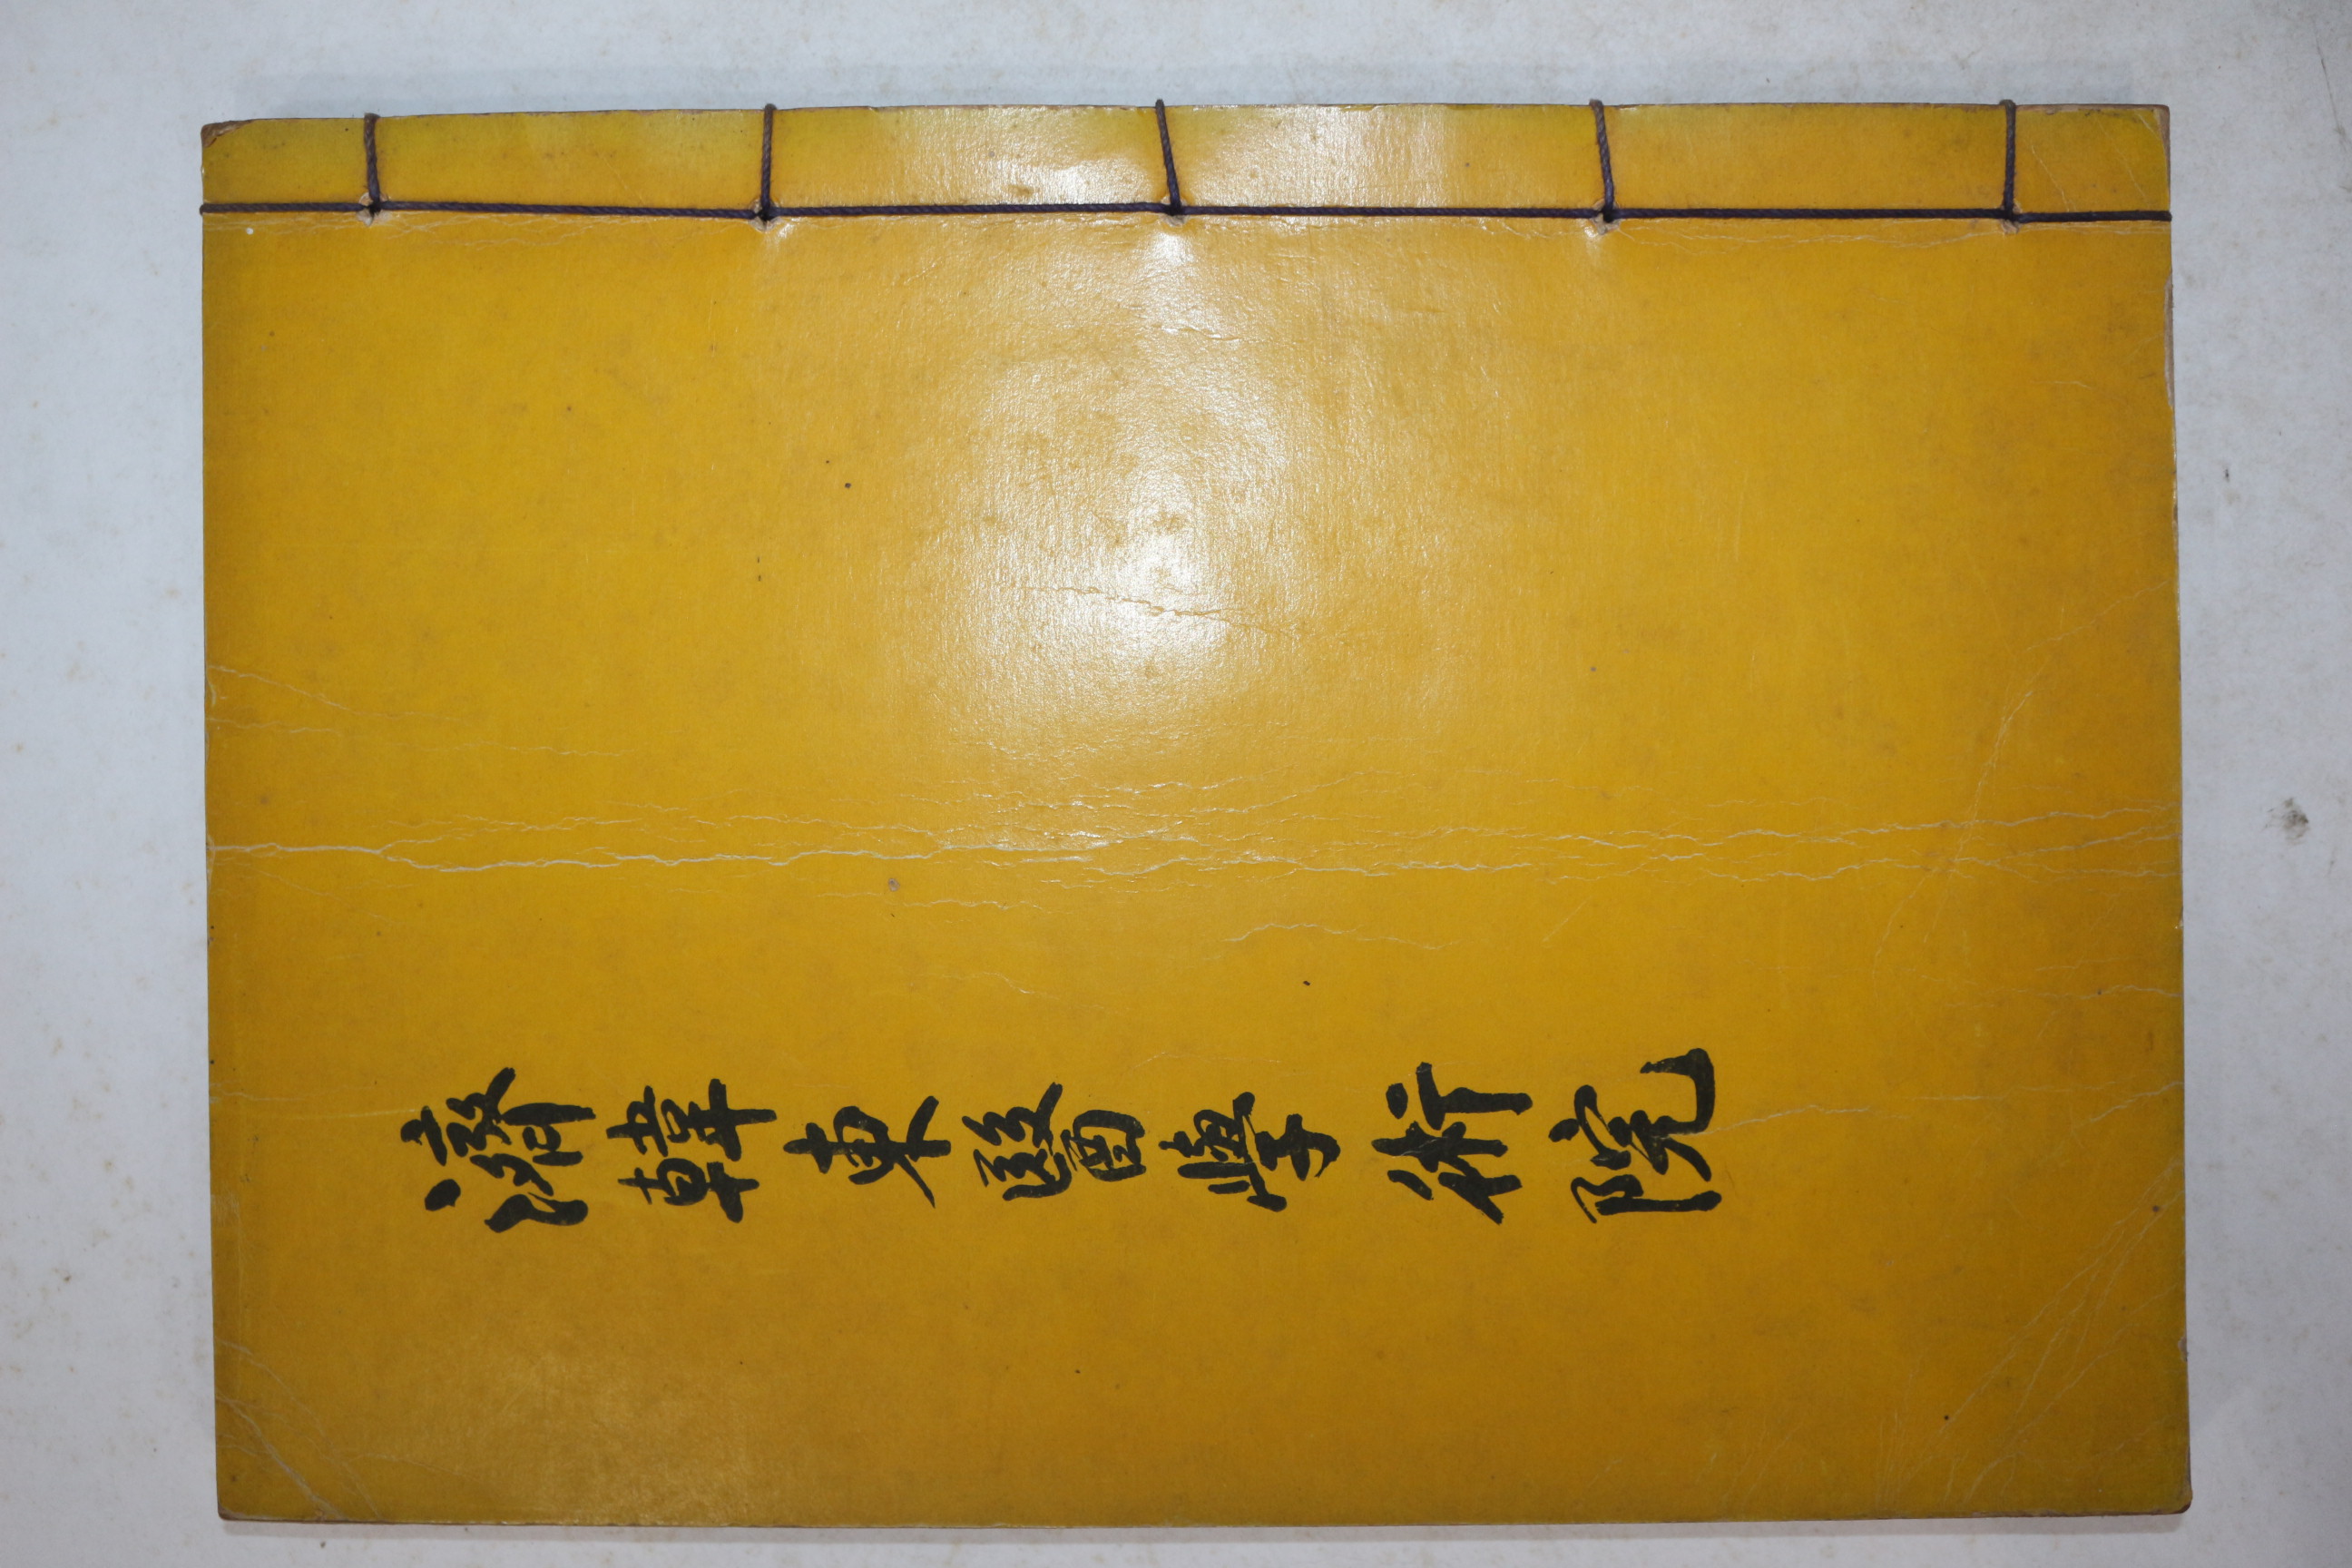 濟韓東醫學術院